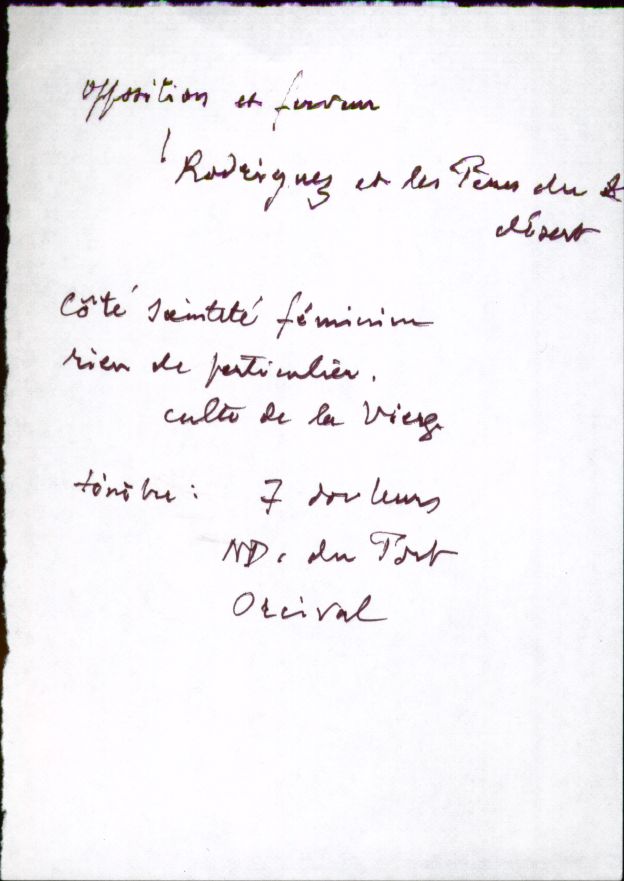 Opposition et ferveur
Rodriguez et les Pères du
désert
Côté sainteté féminine
rien de particulier.
culte de la Vierge
ténèbre : 7 douleurs
ND. du Port
Orcival